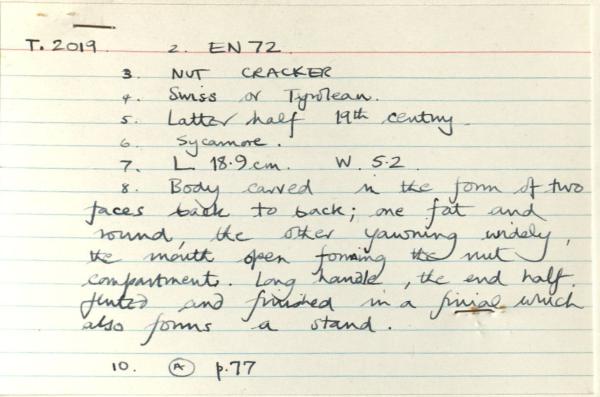 T. 2019 2. EN 72.
3. NUT CRACKER
4. Swiss or Tyrolean.
5. Latter half 19th century.
6. Sycamore.
7. L 18.9 cm. W. 5.2
8. Body carved in the form of two
faces back to back; one fat and
round, the other yawning widely,
the mouth open forming the nut
compartment. Long handle, the end half
fluted and finished in a finial which
also forms a stand.
10. (A) p.77